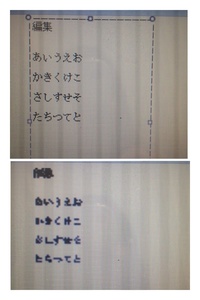 編集
あいうえお
かきくけこ
さしすせそ
たちつてと
あいうえお
かきくけこ
さしすせそ
たちつてと